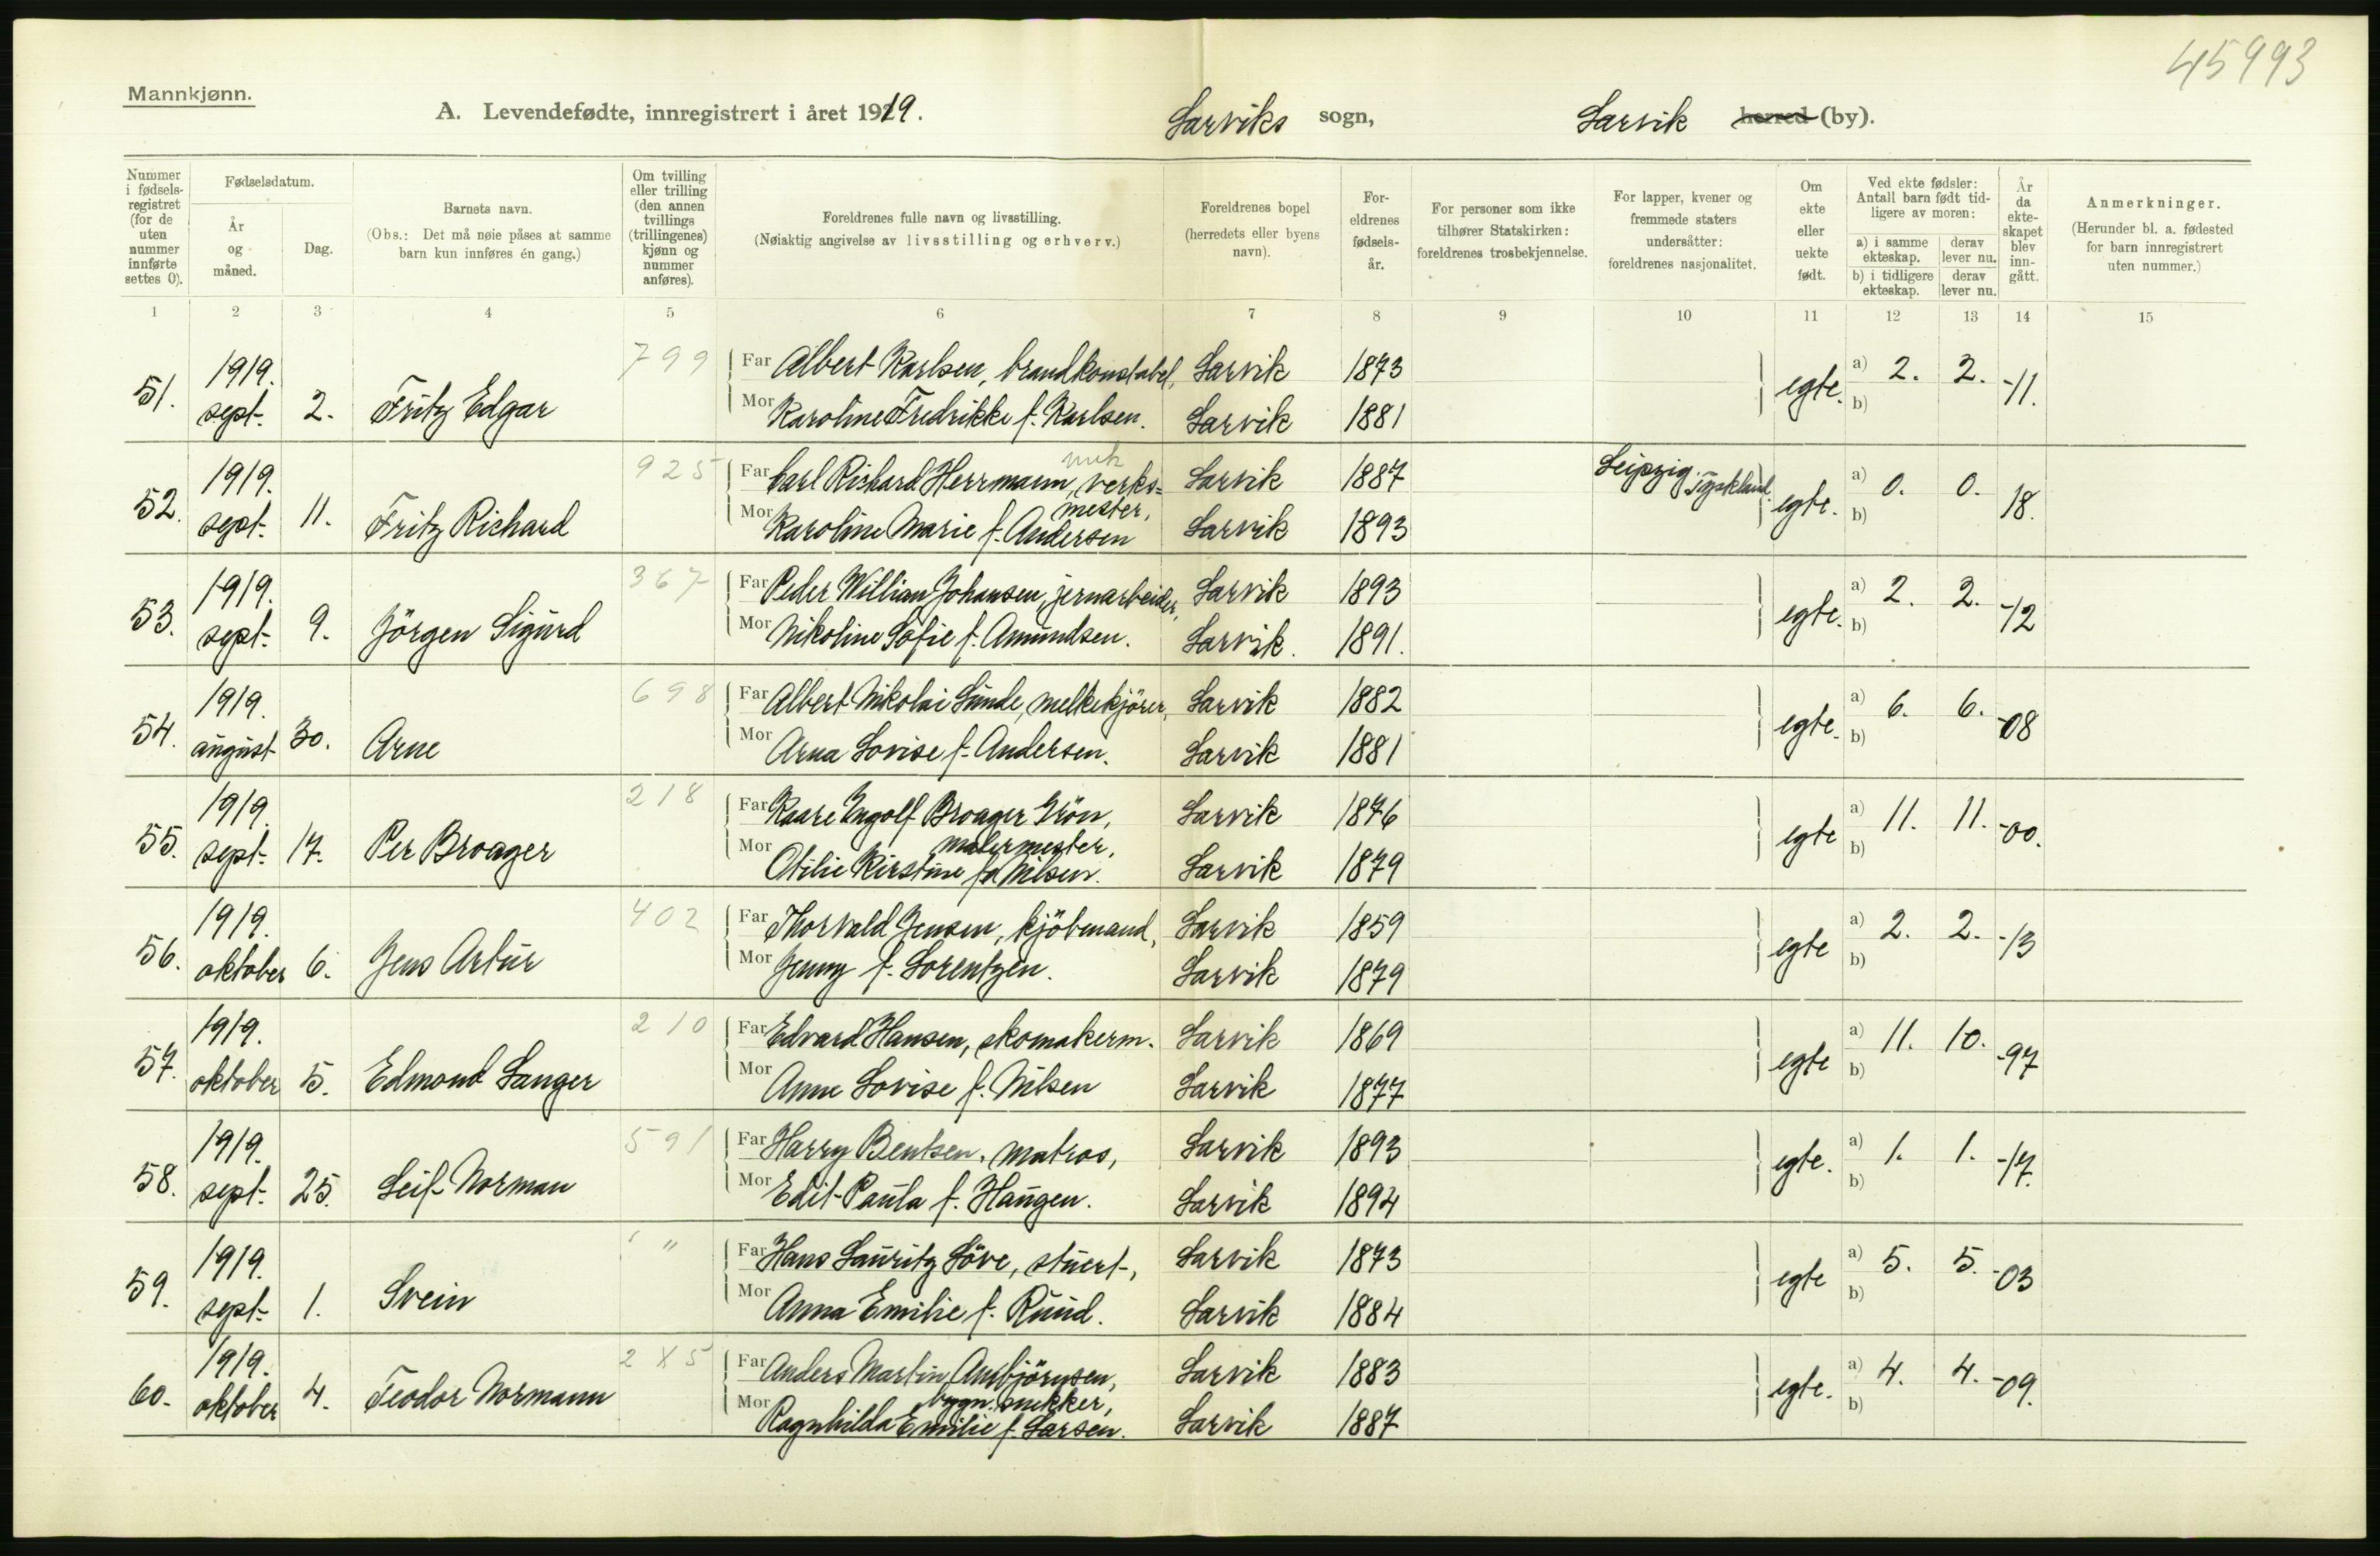 45993
Mannkjønn.
A. Levendefødte, innregistrert i året 1919. Larviks sogn, Larvik herred (by).
Nummer i fødselsregistret (for de uten nummer innførte settes 0).
Fødselsdatum.
År og måned.
Dag.
Barnets navn.
(Obs.: Det må nøie påses at samme barn kun innføres én gang.)
Om tvilling eller trilling (den annen tvillings (trillingenes) kjønn og nummer anføres).
Foreldrenes fulle navn og livsstilling.
(Nøiaktig angivelse av livsstilling og erhverv.)
Foreldrenes bopel (herredets eller byens navn).
Foreldrenes fødselsår.
For personer som ikke tilhører Statskirken: foreldrenes trosbekjennelse.
For lapper, kvener og fremmede staters undersåtter: foreldrenes nasjonalitet.
Om ekte eller uekte født.
Ved ekte fødsler: Antall barn født tidligere av moren:
a) i samme ekteskap. derav lever nu.
b) i tidligere ekteskap. derav lever nu.
År da ekteskapet blev inngått.
Anmerkninger.
(Herunder bl. a. fødested for barn innregistrert uten nummer.)
1 2 3 4 5 6 7 8 9 10 11 12 13 14 15
51. 1919. sept. 2. Fritz Edgar 799 Far Albert Karlsen, brandkonstabel, Larvik 1873 egte. a) 2. 2. -11.
Mor Karoline Fredrikke f. Karlsen. Larvik 1881 b)
52. 1919. sept. 11. Fritz Richard 925 Far Carl Richard Herrmann, mek verksmester, Larvik 1887 Leipzig. Tyskland. egte. a) 0. 0. 18.
Mor Karoline Marie f. Andersen Larvik 1893 b)
53. 1919. sept. 9. Jörgen Sigurd 367 Far Peder William Johansen, jernarbeider, Larvik 1893 egte. a) 2. 2. -12
Mor Nikoline Sofie f. Amundsen. Larvik. 1891. b)
54. 1919. august 30. Arne 698 Far Albert Nikolai Sunde, melkekjörer, Larvik 1882 egte. a) 6. 6. -08
Mor Arna Lovise f. Andersen. Larvik 1881 b)
55. 1919. sept. 17. Per Broager 218 Far Kaare Ingolf Broager Grön, malermester, Larvik 1876 egte a) 11. 11. -00.
Mor Otilie Kirstine f. Nilsen. Larvik 1879 b)
56. 1919. oktober 6. Jens Artur 402 Far Thorvald Jensen, kjöbmand, Larvik 1859 egte a) 2. 2. -13
Mor Jenny f. Lorentzen. Larvik 1879 b)
57. 1919. oktober 5. Edmond Langer 210 Far Edvard Hansen, skomakerm. Larvik 1869 egte a) 11. 10. -97
Mor Anne Lovise f. Nilsen Larvik 1877 b)
58. 1919. sept. 25. Leif Norman 591 Far Harry Bentsen, matros, Larvik 1893 egte. a) 1. 1. -17.
Mor Edit Paula f. Haugen. Larvik 1894 b)
59. 1919. sept. 1. Svein " Far Hans Lauritz Löve, stuert, Larvik 1873 egte a) 5. 5. -03
Mor Anna Emilie f. Ruud. Larvik 1884 b)
60. 1919. oktober 4. Teodor Normann 2X5 Far Anders Martin Ansbjörnsen, bygn. snekker, Larvik 1883 egte. a) 4. 4. -09.
Mor Ragnhilda Emilie f. Larsen. Larvik 1887 b)